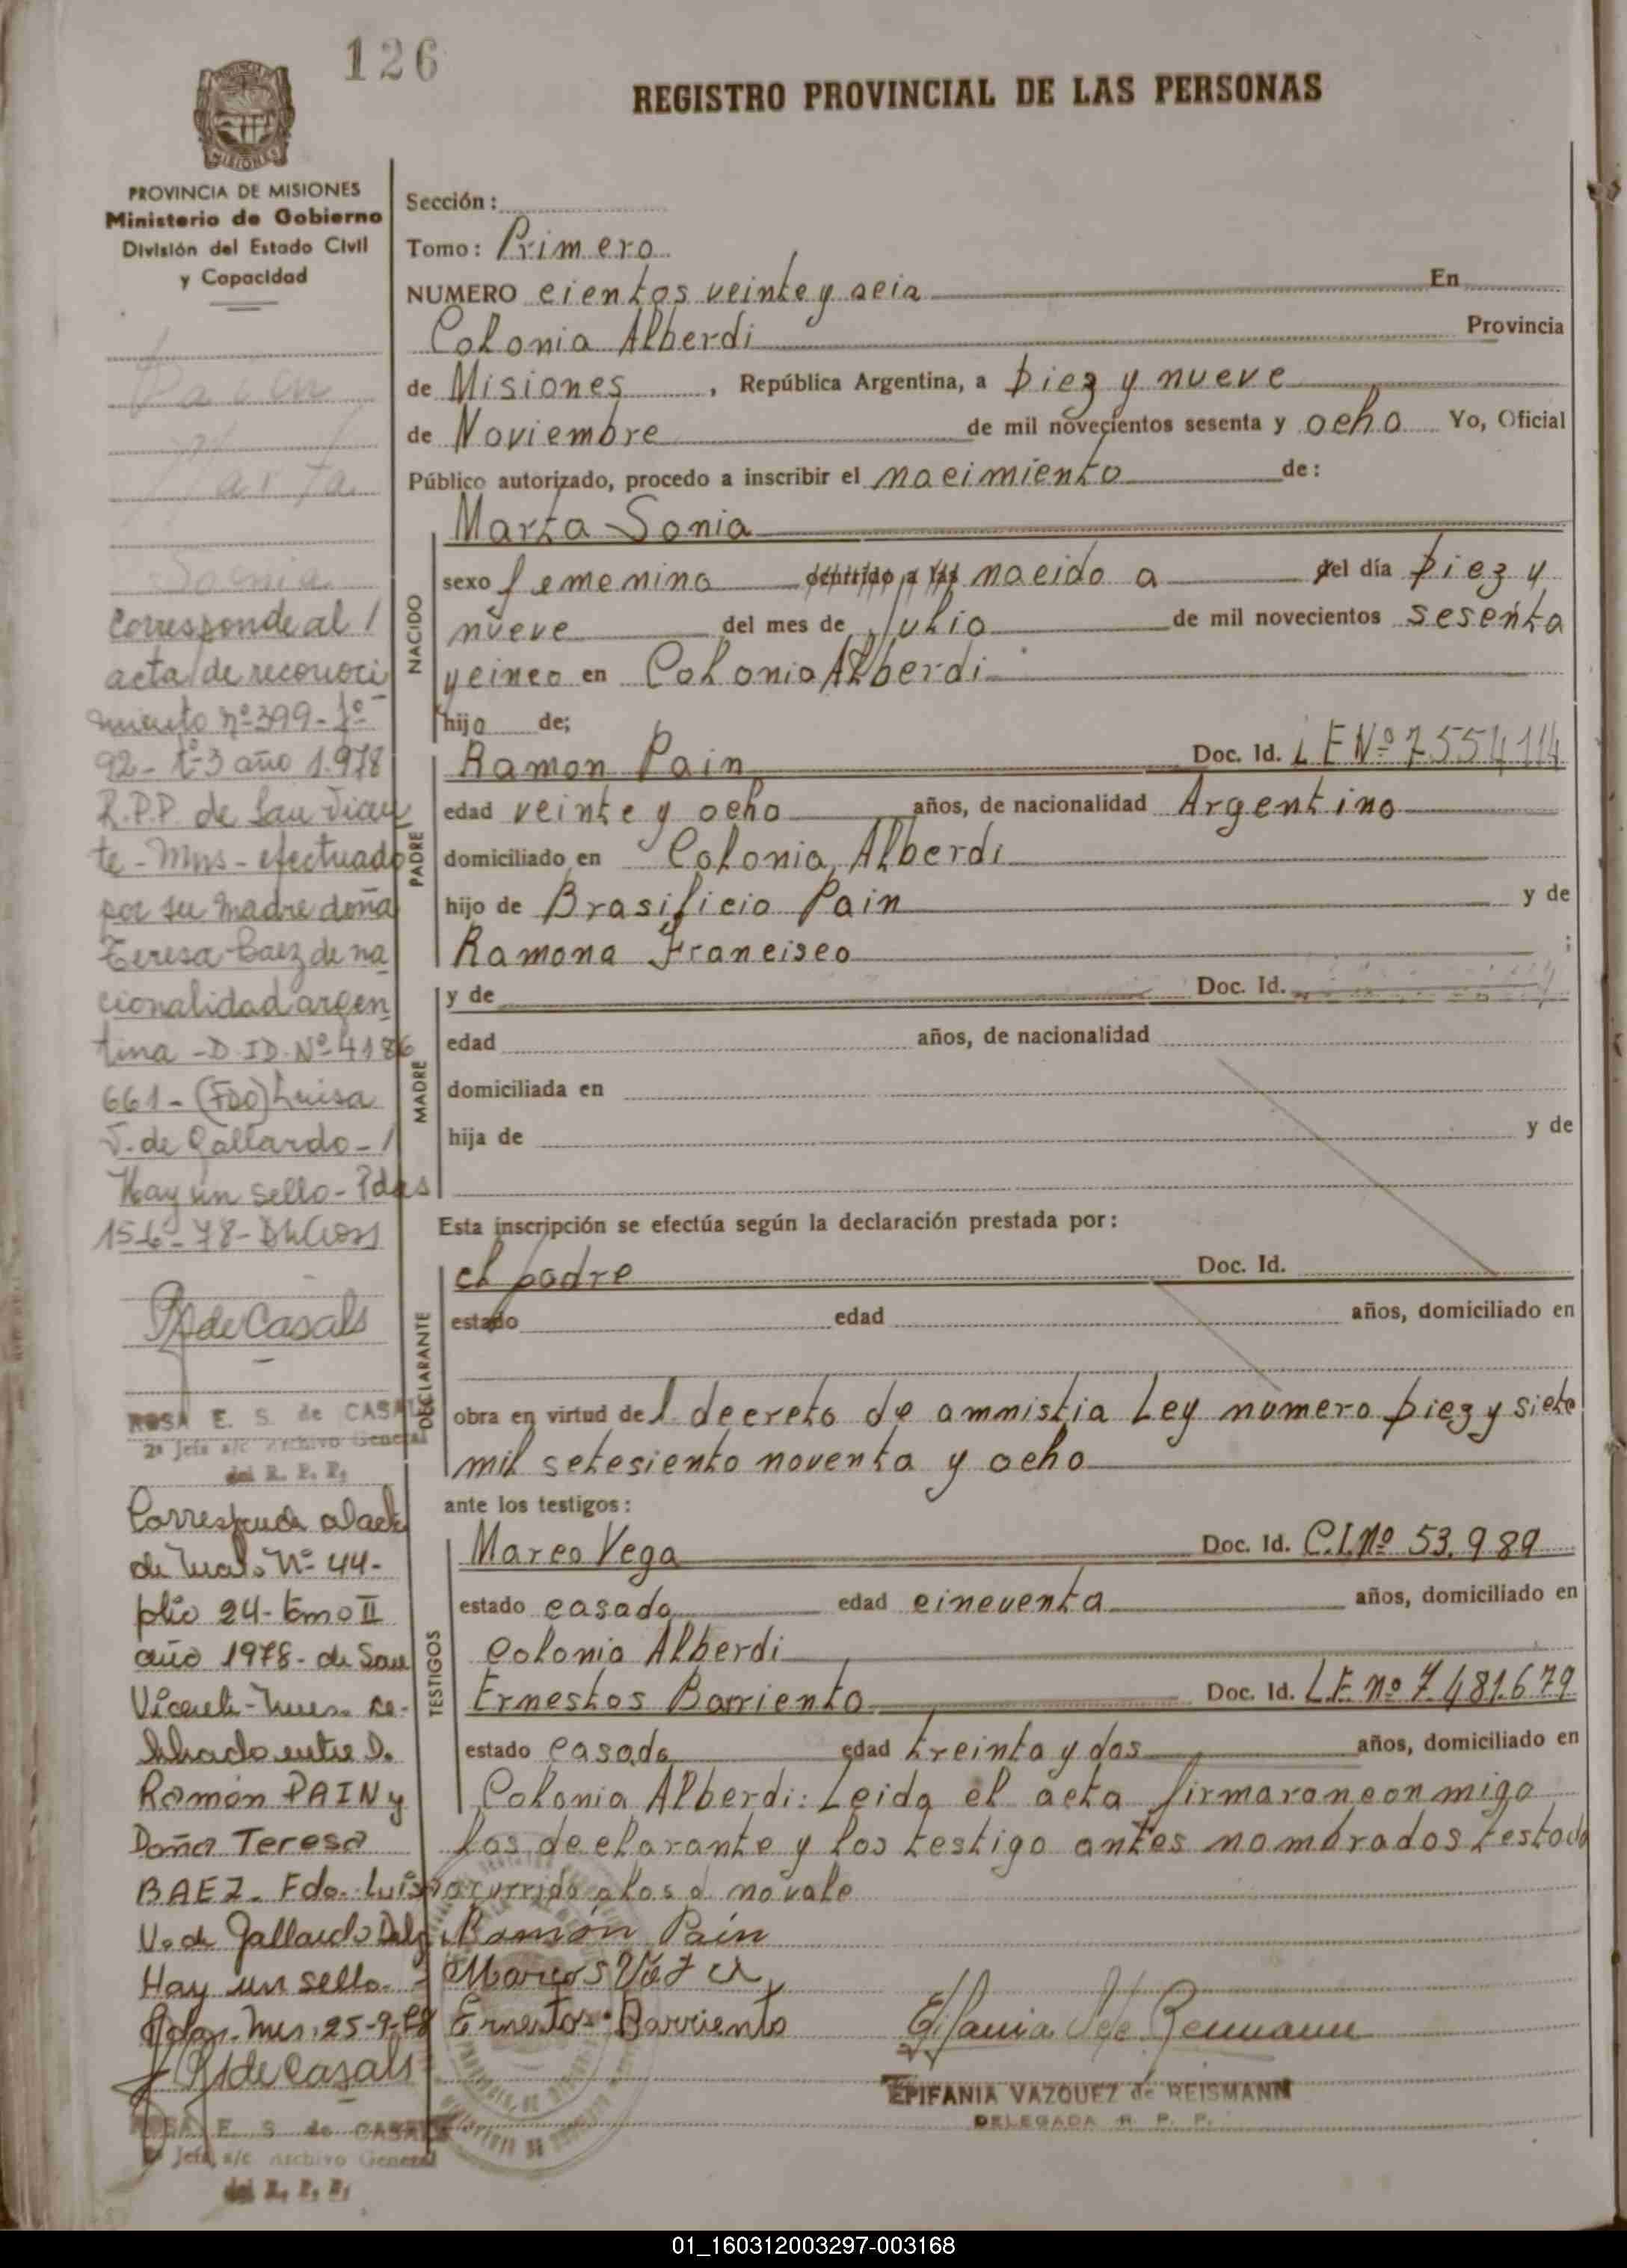 126
REGISTRO PROVINCIAL DE LAS PERSONAS
PROVINCIA DE MISIONES
Ministerio de Gobierno
División del Estado Civil
y Capacidad
Sección:
Tomo: Primero
NUMERO cientos veinte y seis En
Colonia Alberdi Provincia
de Misiones, República Argentina, a Diez y nueve
de Noviembre de mil novecientos sesenta y ocho Yo, Oficial
Público autorizado, procedo a inscribir el nacimiento de:
Marta Sonia
NACIDO
sexo femenino nacido a del día Diez y
nueve del mes de Julio de mil novecientos sesenta
y cinco en Colonia Alberdi
hija de;
PADRE
Ramon Pain Doc. Id. L E Nº 7554114
edad veinte y ocho años, de nacionalidad Argentino
domiciliado en Colonia Alberdi
hijo de Brasilicio Pain y de
Ramona Francisco ;
MADRE
y de Doc. Id.
edad años, de nacionalidad
domiciliada en
hija de y de
Esta inscripción se efectúa según la declaración prestada por:
DECLARANTE
el padre Doc. Id.
estado edad años, domiciliado en
obra en virtud del decreto de amnistia Ley numero Diez y siete
mil setesiento noventa y ocho
ante los testigos:
TESTIGOS
Marco Vega Doc. Id. C.I.Nº 53.989
estado casado edad cincuenta años, domiciliado en
Colonia Alberdi
Ernestos Barriento Doc. Id. L.E. nº 7.481.679
estado Casado edad treinta y dos años, domiciliado en
Colonia Alberdi: Leida el acta firmaran conmigo
los declarante y los testigo antes nombrados testado
ocurrido a las d no vale
Ramón Pain
Marcos Vega
Ernestos Barriento
EPIFANIA VAZQUEZ de REISMANN
DELEGADA R. P. P.
Pain
Marta
Sonia
Corresponde al /
acta de reconoci
miento nº 399- fº
92- tº 3 año 1.978
R.P.P. de San Vicen
te - Mns - efectuado
por su madre doña
Teresa Baez de na
cionalidad argen
tina - D.ID. Nº 4186
661 - (Fdo) Luisa
V. de Gallardo - /
Hay un sello - Pdas
RS de Casals
ROSA E. S. de CASALS
2ª Jefa a/c Archivo General
del R. P. P.
Corresponde al acta
de Mat. Nº 44-
folio 24- tomo II
año 1978- de San
Vicente - Mnes. ce-
lebrado entre D.
Ramón PAIN y
Doña Teresa
BAEZ. Fdo. Luisa
V. de Gallardo Delg.
Hay un sello.
Pdas. Mns. 25-9-78
RS de Casals
ROSA E. S. de CASALS
2ª Jefa a/c Archivo General
del R. P. P.
01_160312003297-003168